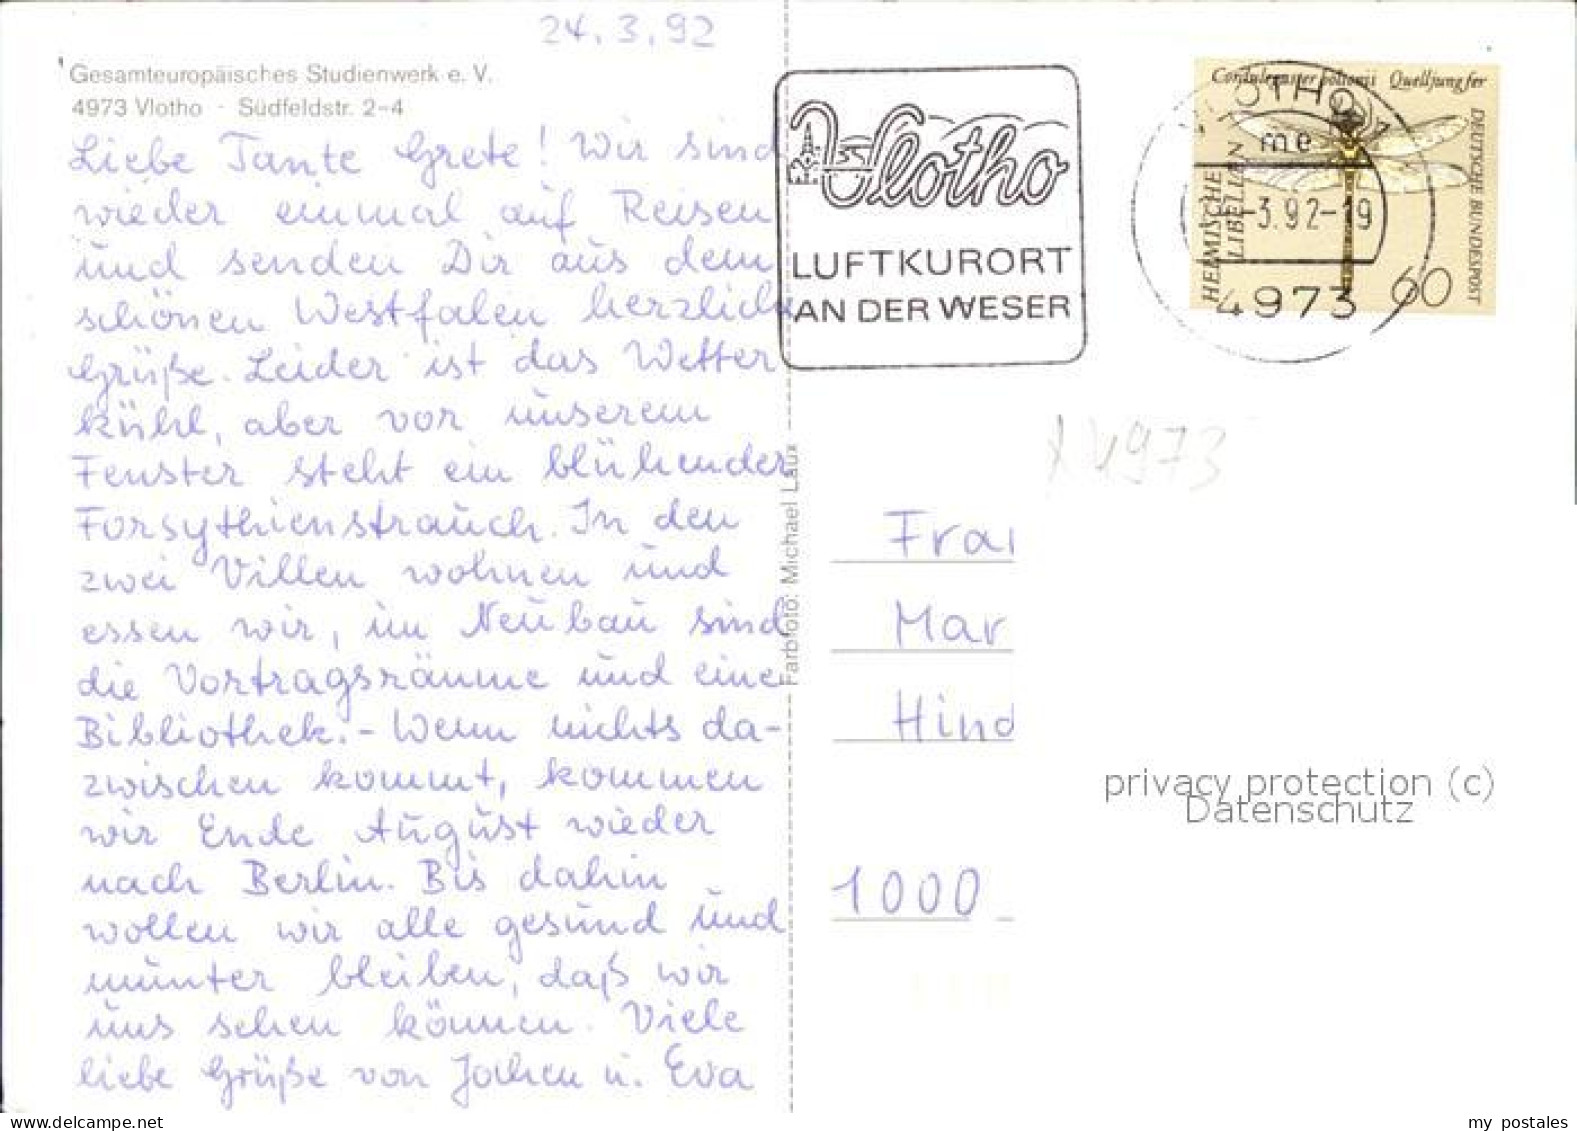 24.3.92
Gesamteuropäisches Studienwerk e. V.
4973 Vlotho · Südfeldstr. 2-4
Liebe Tante Grete! Wir sind
wieder einmal auf Reisen
und senden Dir aus dem
schönen Westfalen herzliche
Grüße. Leider ist das Wetter
kühl, aber vor unserem
Fenster steht ein blühender
Forsythienstrauch. In den
zwei Villen wohnen und
essen wir, im Neubau sind
die Vortragsräume und eine
Bibliothek. - Wenn nichts da-
zwischen kommt, kommen
wir Ende August wieder
nach Berlin. Bis dahin
wollen wir alle gesund und
munter bleiben, daß wir
uns sehen können. Viele
liebe Grüße von Jochen u. Eva
Farbfoto: Michael Laux
Vlotho
LUFTKURORT
AN DER WESER
Cordulegaster boltonii Quelljungfer
DEUTSCHE BUNDESPOST
HEIMISCHE
LIBELLEN
60
VLOTHO 1
me
-3.92-19
4973
4973
Frau
Mar
Hind
1000
privacy protection (c)
Datenschutz
www.delcampe.net
my postales